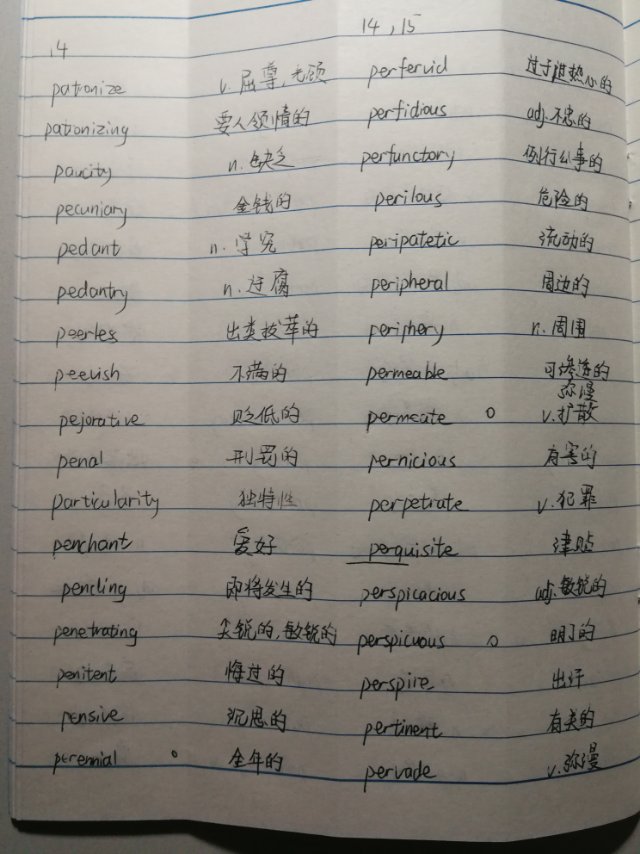 14
14,15
patronize v.屈尊,光顾 perfervid 过于热心的
patronizing 要人领情的 perfidious adj.不忠的
paucity n.缺乏 perfunctory 例行公事的
pecuniary 金钱的 perilous 危险的
pedant n.学究 peripatetic 流动的
pedantry n.迂腐 peripheral 周边的
peerles 出类拔萃的 periphery n.周围
peevish 不满的 permeable 可渗透的
弥漫
pejorative 贬低的 permeate v.扩散
penal 刑罚的 pernicious 有害的
particularity 独特性 perpetrate v.犯罪
penchant 爱好 perquisite 津贴
pending 即将发生的 perspicacious adj.敏锐的
penetrating 尖锐的,敏锐的 perspicuous 明了的
penitent 悔过的 perspire 出汗
pensive 沉思的 pertinent 有关的
perennial 全年的 pervade v.弥漫